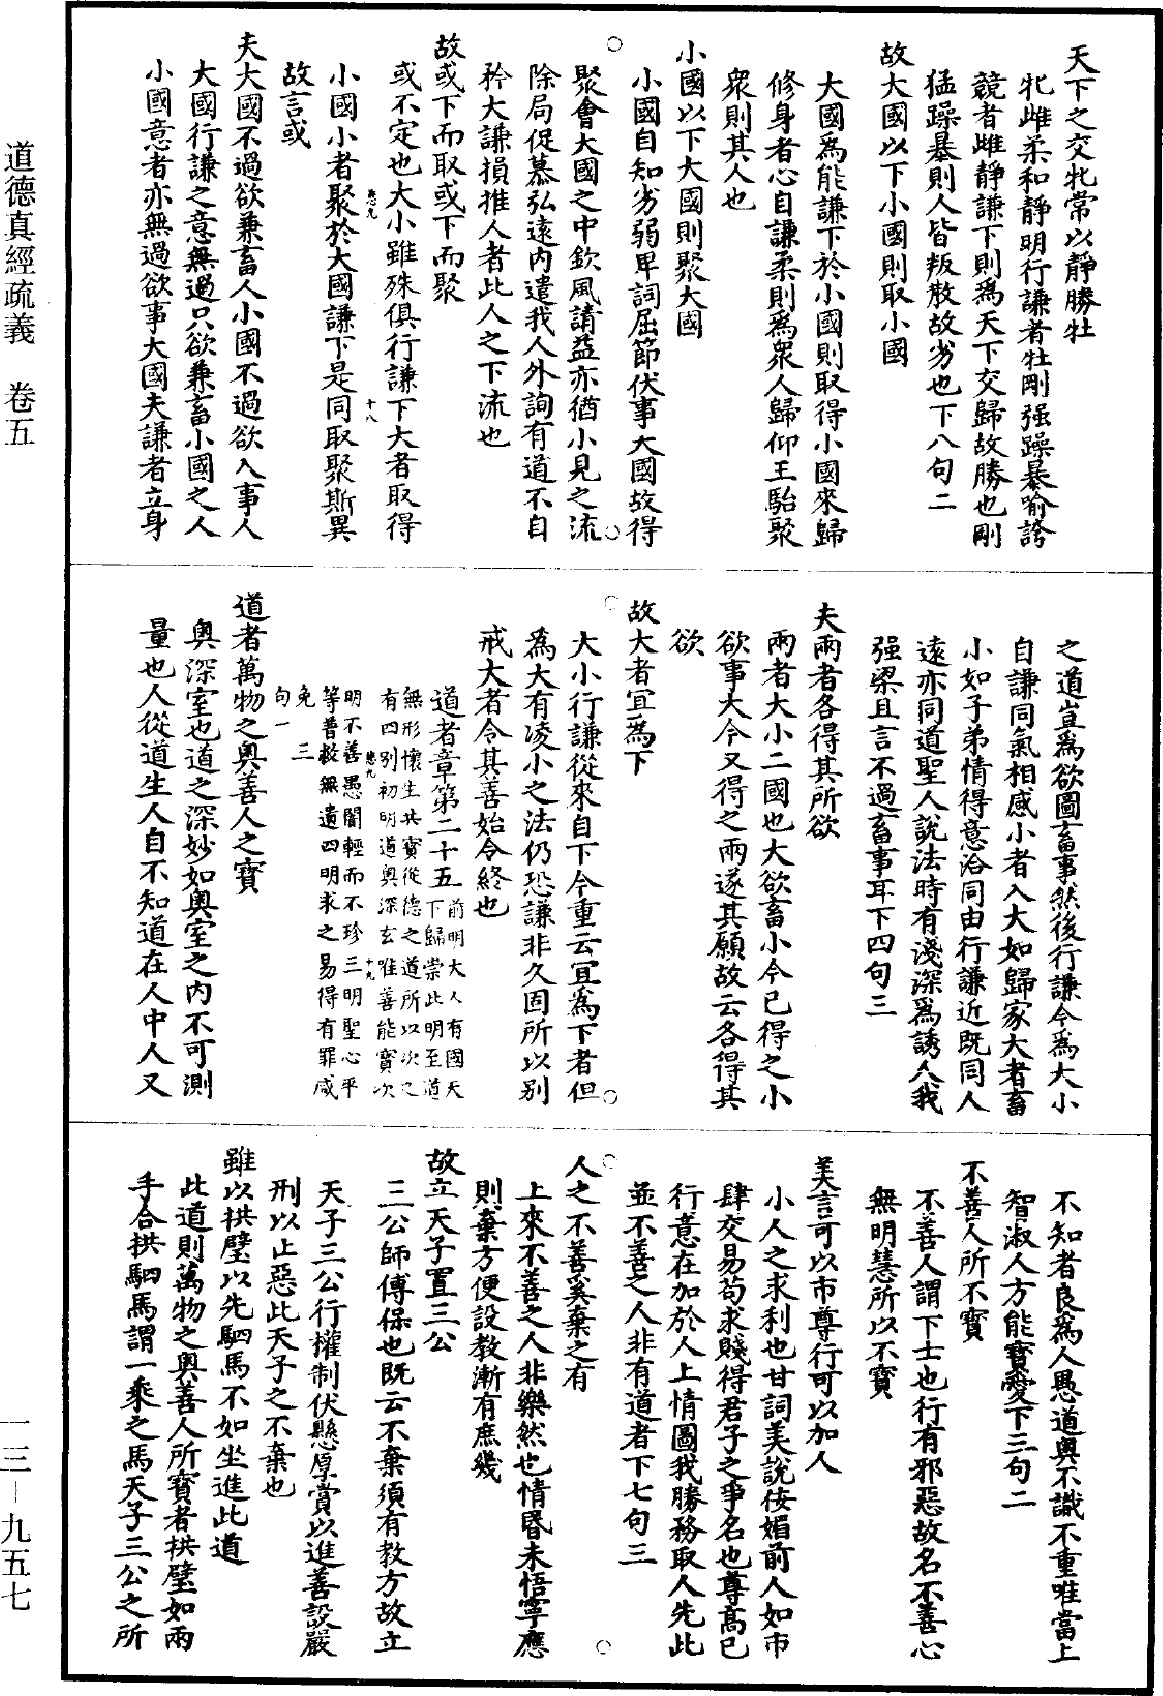 天下之交牝常以靜勝牡
牝雌柔和靜明行謙者牡剛强躁暴喻誇
競者雌靜謙下則爲天下交歸故勝也剛
猛躁暴則人皆叛散故劣也下八句二
故大國以下小國則取小國
大國爲能謙下於小國則取得小國來歸
修身者心自謙柔則爲衆人歸仰王駘聚
衆則其人也
小國以下大國則聚大國
小國自知劣弱卑詞屈節伏事大國故得
聚會大國之中欽風請益亦猶小見之流
除局促慕弘遠內遣我人外詢有道不自
矜大謙損推人者此人之下流也
故或下而取或下而聚
或不定也大小雖殊俱行謙下大者取得
悲九
十八
小國小者聚於大國謙下是同取聚斯異
故言或
夫大國不過欲兼畜人小國不過欲入事人
大國行謙之意無過只欲兼畜小國之人
小國意者亦無過欲事大國夫謙者立身
之道豈爲欲圖畜事然後行謙今爲大小
自謙同氣相感小者入大如歸家大者畜
小如子弟情得意洽同由行謙近既同人
遠亦同道聖人說法時有淺深爲誘人我
强梁且言不過畜事耳下四句三
夫兩者各得其所欲
兩者大小二國也大欲畜小今已得之小
欲事大今又得之兩遂其願故云各得其
欲
故大者宜爲下
大小行謙從來自下今重云宜爲下者但
爲大有凌小之法仍恐謙非久固所以別
戒大者令其善始令終也
道者章第二十五
前明大人有國天
下歸崇此明至道
無形懷生共寶從德之道所以次之
有四別初明道奧深玄唯善能寶次
悲九
十九
明不善愚闇輕而不珍三明聖心平
等普救無遺四明求之易得有罪咸
免 三
句一
道者萬物之奧善人之寶
奧深室也道之深妙如奧室之內不可測
量也人從道生人自不知道在人中人又
不知者良爲人愚道奧不識不重唯當上
智淑人方能寶愛下三句二
不善人所不寶
不善人謂下士也行有邪惡故名不善心
無明慧所以不寶
美言可以市尊行可以加人
小人之求利也甘詞美說侫媚前人如市
肆交易苟求賤得君子之爭名也尊高已
行意在加於人上情圖我勝務取人先此
並不善之人非有道者下七句三
人之不善奚棄之有
上來不善之人非樂然也情昬未悟寧應
則棄方便設教漸有庶幾
故立天子置三公
三公師傅保也既云不棄須有教方故立
天子三公行權制伏懸厚賞以進善設嚴
刑以止惡此天子之不棄也
雖以拱璧以先駟馬不如坐進此道
此道則萬物之奧善人所寶者拱璧如兩
手合拱駟馬謂一乘之馬天子三公之所
道德真經疏義 卷五
一三－九五七